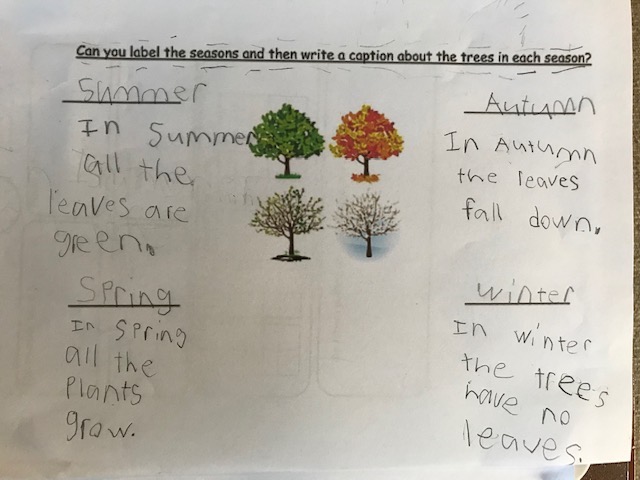 Can you label the seasons and then write a caption about the trees in each season?
Summer
In Summer
all the
leaves are
green.
Autumn
In Autumn
the leaves
fall down.
Spring
In Spring
all the
Plants
grow.
winter
In winter
the trees
have no
leaves.